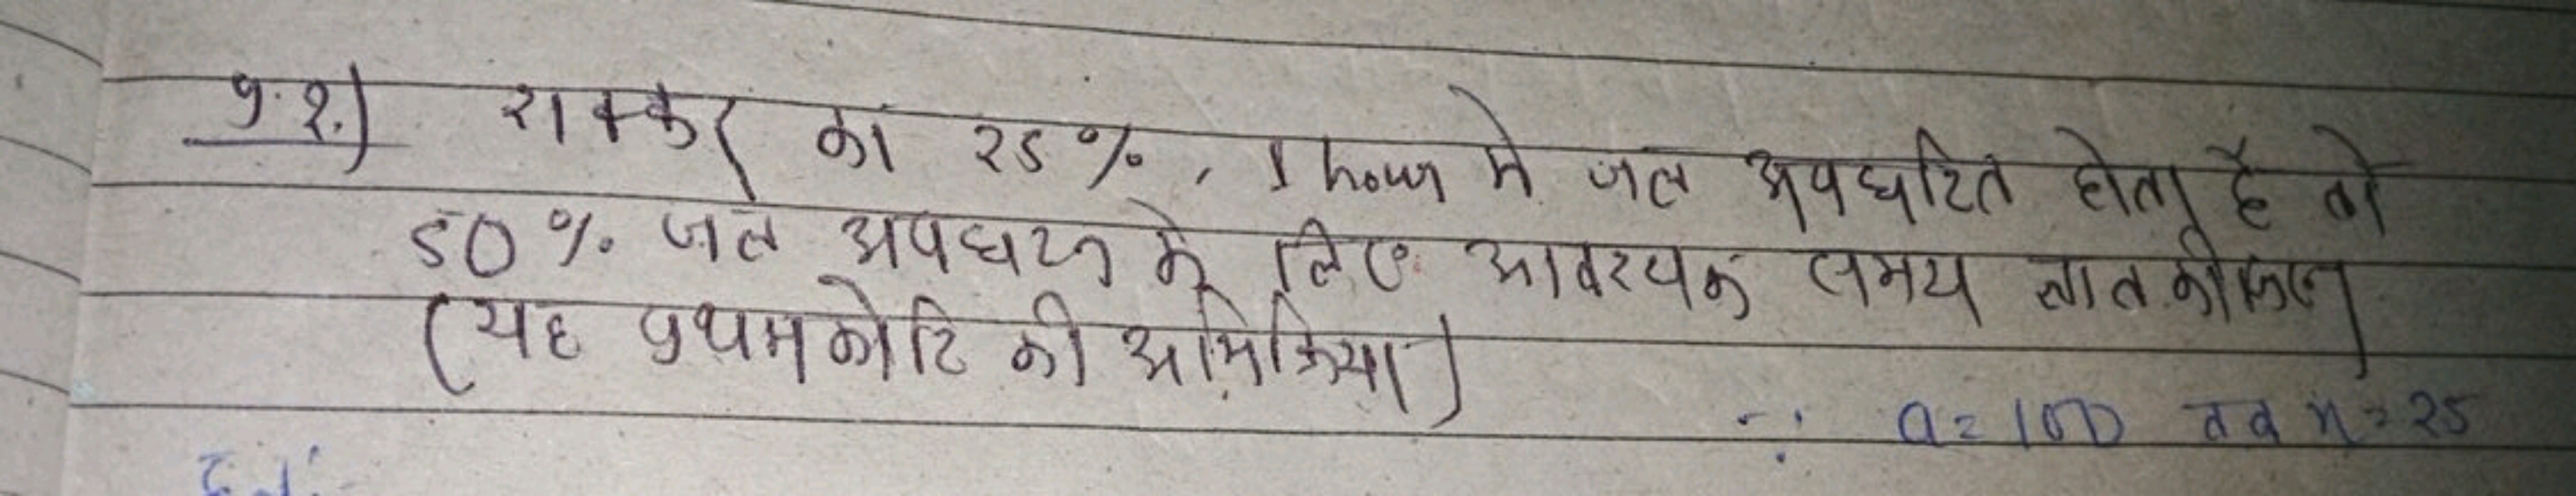 प्र.2.) शक्कर का 25%, 1 hour मे जल अपघटित होता है तो
50% जल अपघटन के लिए आवश्यक समय ज्ञात कीजिए
(यह प्रथम कोटि की अभिक्रिया)
∵ a=100 तब x=25